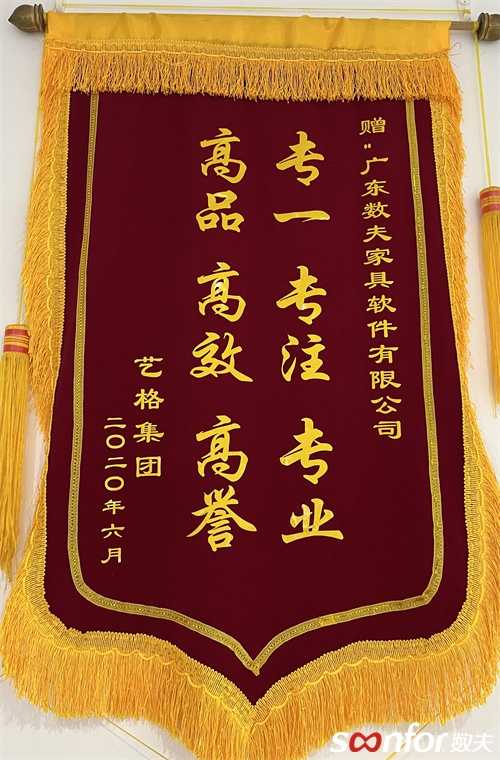 赠:广东数夫家具软件有限公司
专一 专注 专业
高品 高效 高誉
艺格集团
二〇二〇年六月
soonfor数夫